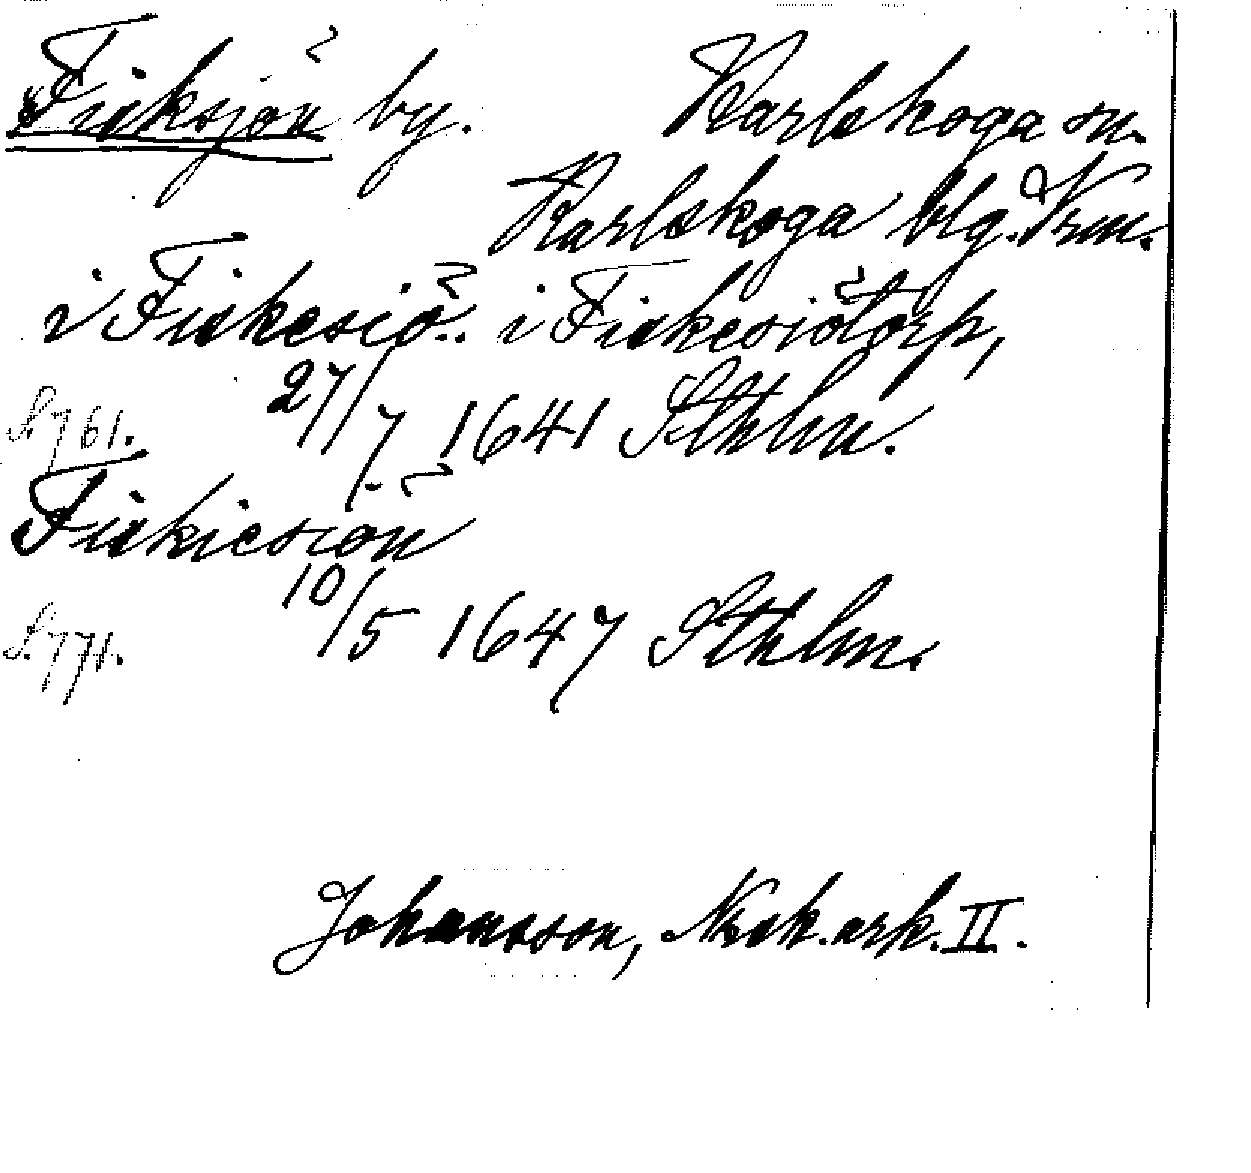 Fisksjön by. Karlskoga sn.
Karlskoga blg. Vrm.
i Fiskesiö.. i Fiskesiötorp,
27/7 1641 Sthlm.
S. 761.
Fiskiesiön
10/5 1647 Sthlm.
S. 771.
Johansson, Noraark. II.